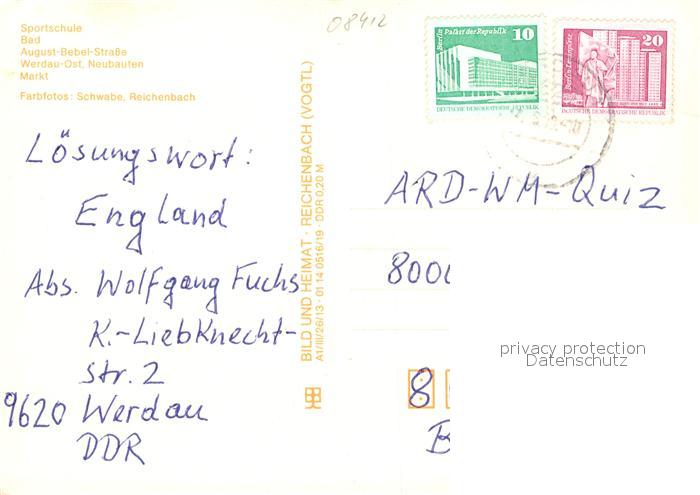 Sportschule
Bad
August-Bebel-Straße
Werdau-Ost, Neubauten
Markt
Farbfotos: Schwabe, Reichenbach
08412
Berlin Palast der Republik 10
DEUTSCHE DEMOKRATISCHE REPUBLIK
Berlin-Leninplatz 20
DEUTSCHE DEMOKRATISCHE REPUBLIK
Lösungswort:
England
Abs. Wolfgang Fuchs
K.-Liebknecht-
str. 2
9620 Werdau
DDR
BILD UND HEIMAT · REICHENBACH (VOGTL)
A1/III/26/13 · 01 14 0516/19 · DDR 0,20 M
ARD-WM-Quiz
800
8
B
privacy protection
Datenschutz